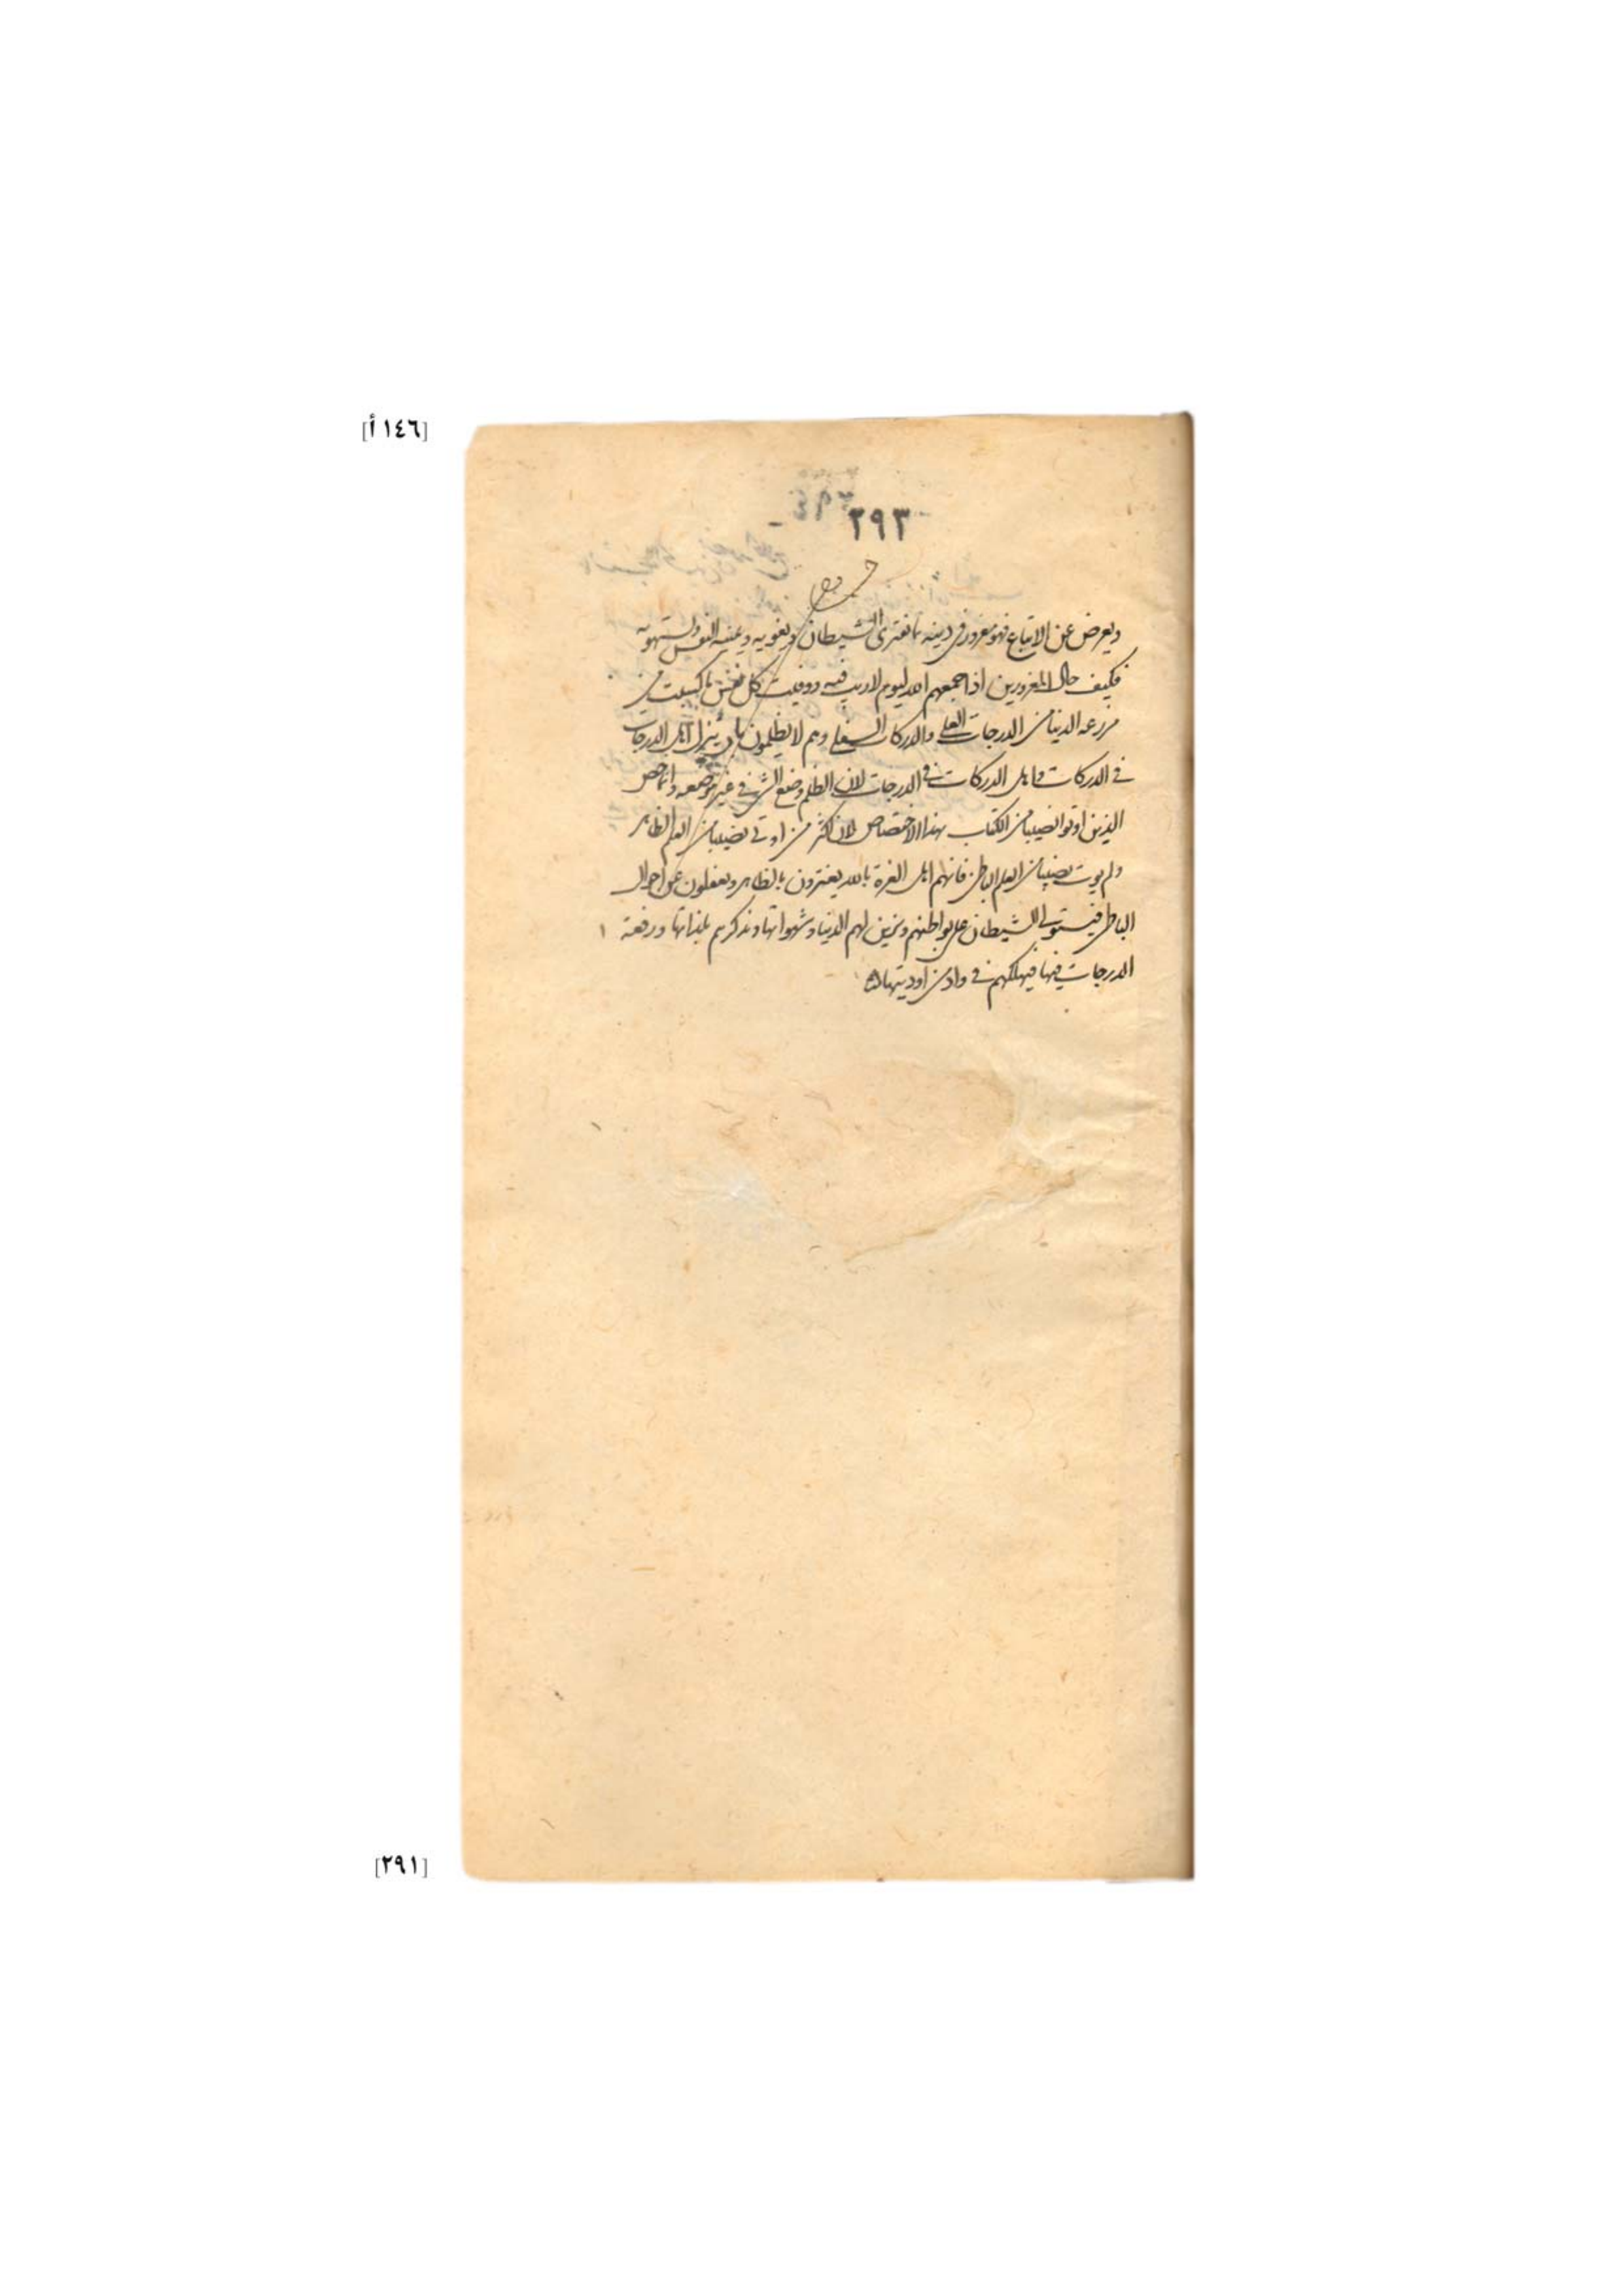 [١٤٦ أ]
٢٩٣
ويعرض عن الاتباع فهو مغرور في دينه بما نفترى الشيطان ويغويه ويمنيه النفس وتستهويه
فكيف حال المغرورين اذا جمعهم الله ليوم لاريب فيه ووفيت كل نفس ما كسبت من
مزرعه الدنيا من الدرجات العلى والدركات السفلى وهم لا يظلمون بان ينزل اهل الدرجات
في الدركات واهل الدركات في الدرجات لان الظلم وضع الشئ في غير موضعه وانما خص
الذين اوتوا نصيبا من الكتاب بهذا الاختصاص لان اكثر من اوتى نصيبا من العلم الظاهر
ولم يوت نصيبا من العلم الباطن فانهم اهل الغرة بالله يغترون بالظاهر ويغفلون عن احوال
الباطن فيستولى الشيطان على بواطنهم ويزين لهم الدنيا وشهواتها ويذكرهم بلذاتها ورفعة
الدرجات فيها فيهلكهم في واد من اوديتها
[٢٩١]